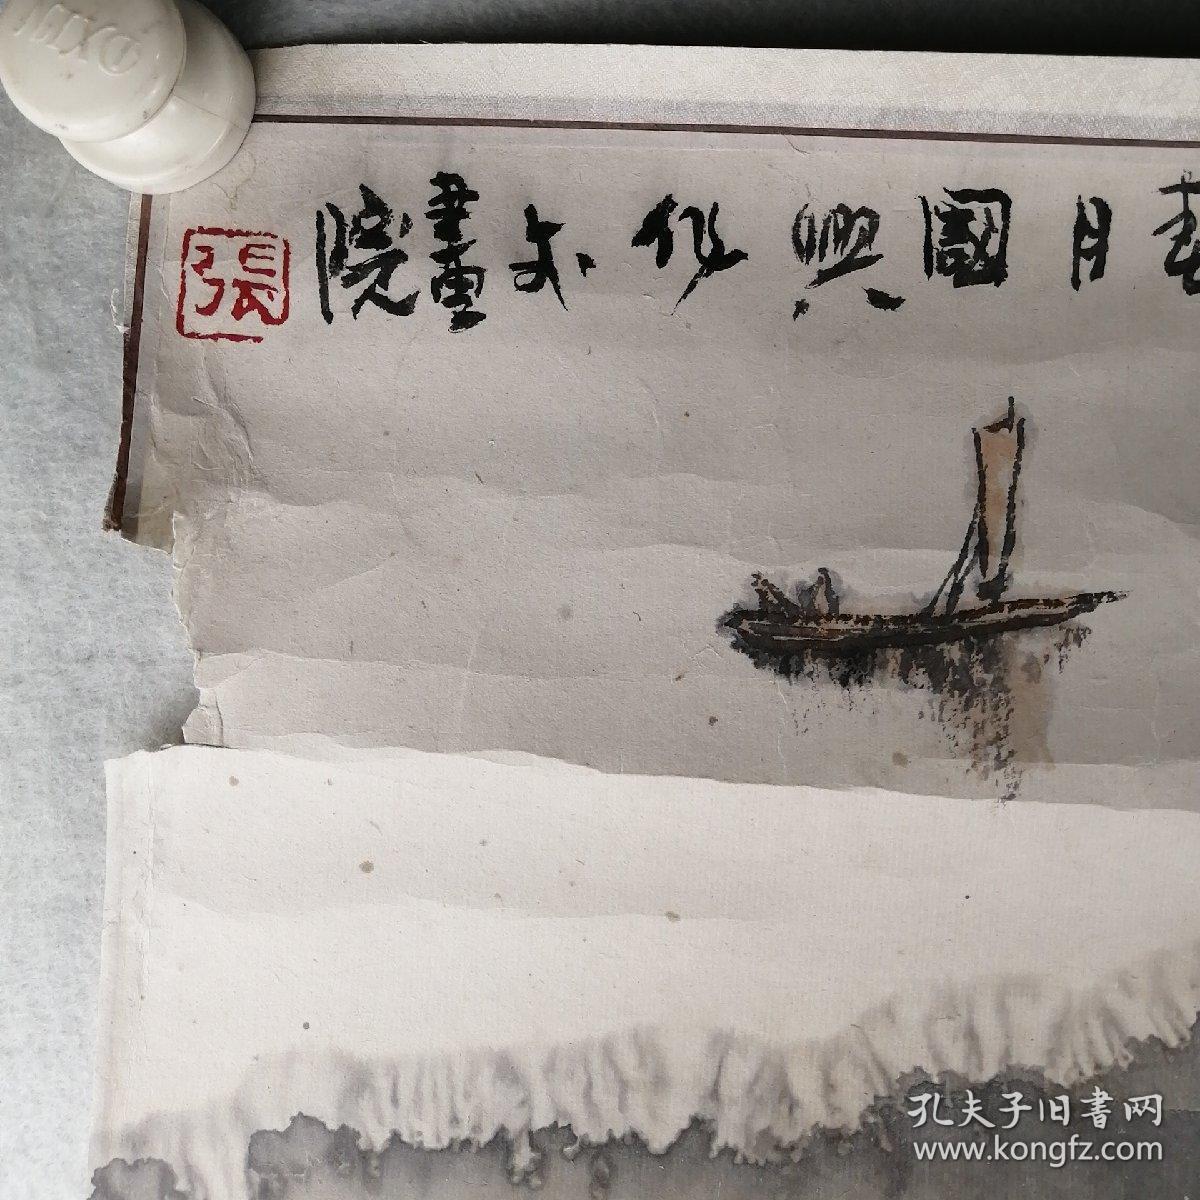 春月國興作於畫院
張
孔夫子旧書网
www.kongfz.com